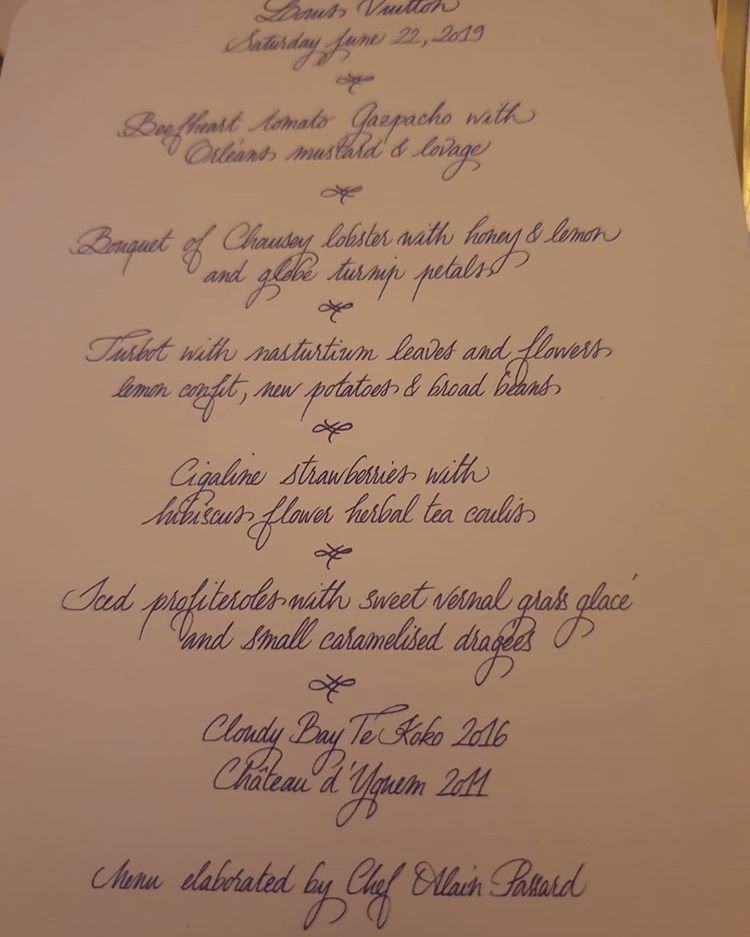 Louis Vuitton
Saturday June 22, 2019
Beefheart tomato Gazpacho with
Orléans mustard & lovage
Bouquet of Chausey lobster with honey & lemon
and globe turnip petals
Turbot with nasturtium leaves and flowers
lemon confit, new potatoes & broad beans
Cigaline strawberries with
hibiscus flower herbal tea coulis
Iced profiteroles with sweet vernal grass glacé
and small caramelised dragées
Cloudy Bay Te Koko 2016
Château d'Yquem 2011
Menu elaborated by Chef Alain Passard